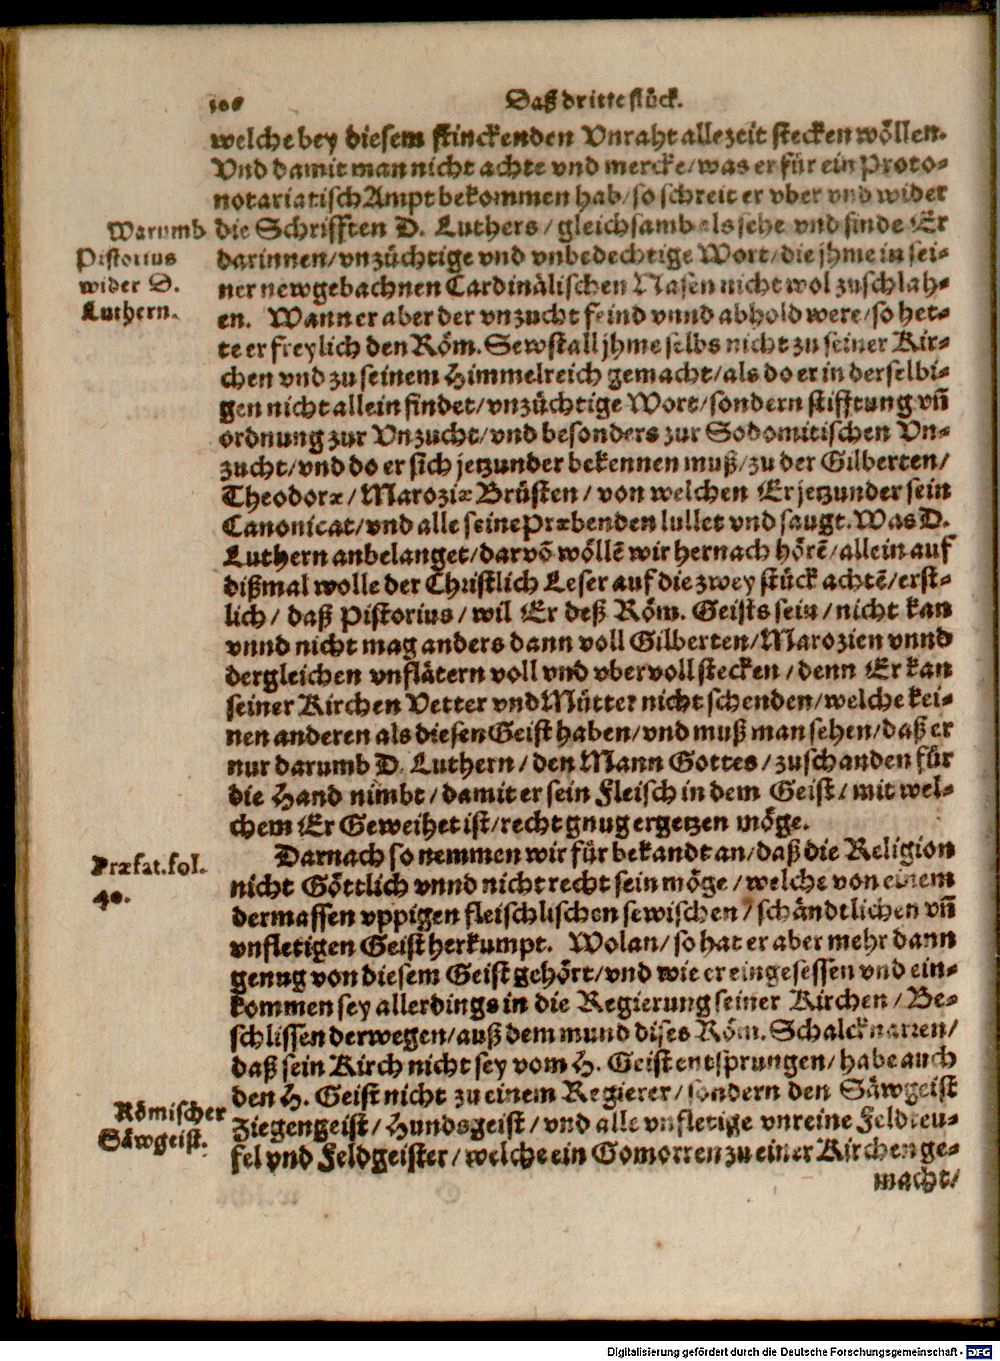 Daß dritte stück.
welche bey diesem stinckenden Vnraht allezeit stecken wöllen.
Vnd damit man nicht achte vnd mercke/ was er für ein Proto-
notariatisch Ampt bekommen hab/ so schreit er vber vnd wider
Warumb
Pistorius
wider D.
Luthern.
die Schrifften D. Luthers/ gleichsamb als sehe vnd finde Er
darinnen/ vnzüchtige vnd vnbedechtige Wort/ die jhme in sei-
ner newgebachnen Cardinälischen Nasen nicht wol zuschlah-
en. Wann er aber der vnzucht feind vnnd abhold were/ so het-
te er freylich den Röm. Sewstall jhme selbs nicht zu seiner Kir-
chen vnd zu seinem Himmelreich gemacht/ als do er in derselbi-
gen nicht allein findet/ vnzüchtige Wort/ sondern stifftung vñ
ordnung zur Vnzucht/ vnd besonders zur Sodomitischen Vn-
zucht/ vnd do er sich jetzunder bekennen muß/ zu der Gilberten/
Theodoræ/ Maroziæ Brüsten/ von welchen Er jetzunder sein
Canonicat/ vnd alle seine Præbenden lullet vnd saugt. Was D.
Luthern anbelanget/ darvõ wöllẽ wir hernach hörẽ/ allein auf
dißmal wolle der Christlich Leser auf die zwey stück achtẽ/ erst-
lich/ daß Pistorius/ wil Er deß Röm. Geists sein/ nicht kan
vnnd nicht mag anders dann voll Gilberten/ Marozien vnnd
dergleichen vnflätern voll vnd vbervoll stecken/ denn Er kan
seiner Kirchen Vetter vnd Mütter nicht schenden/ welche kei-
nen anderen als diesen Geist haben/ vnd muß man sehen/ daß er
nur darumb D. Luthern/ den Mann Gottes/ zuschanden für
die Hand nimbt/ damit er sein Fleisch in dem Geist/ mit wel-
chem Er Geweihet ist/ recht gnug ergetzen möge.
Præfat. fol.
40.
Darnach so nemmen wir für bekandt an/ daß die Religion
nicht Göttlich vnnd nicht recht sein möge/ welche von einem
dermassen vppigen fleischlischen sewischen/ schändtlichen vñ
vnfletigen Geist herkumpt. Wolan/ so hat er aber mehr dann
genug von diesem Geist gehört/ vnd wie er eingesessen vnd ein-
kommen sey allerdings in die Regierung seiner Kirchen/ Be-
schlissen derwegen/ auß dem mund dises Röm. Schalcknarren/
daß sein Kirch nicht sey vom H. Geist entsprungen/ habe auch
den H. Geist nicht zu einem Regierer/ sondern den Säwgeist
Römischer
Säwgeist.
Ziegengeist/ Hundsgeist/ vnd alle vnfletige vnreine Feldteu-
fel vnd Feldgeister/ welche ein Gomorren zu einer Kirchen ge-
macht/
Digitalisierung gefördert durch die Deutsche Forschungsgemeinschaft - DFG